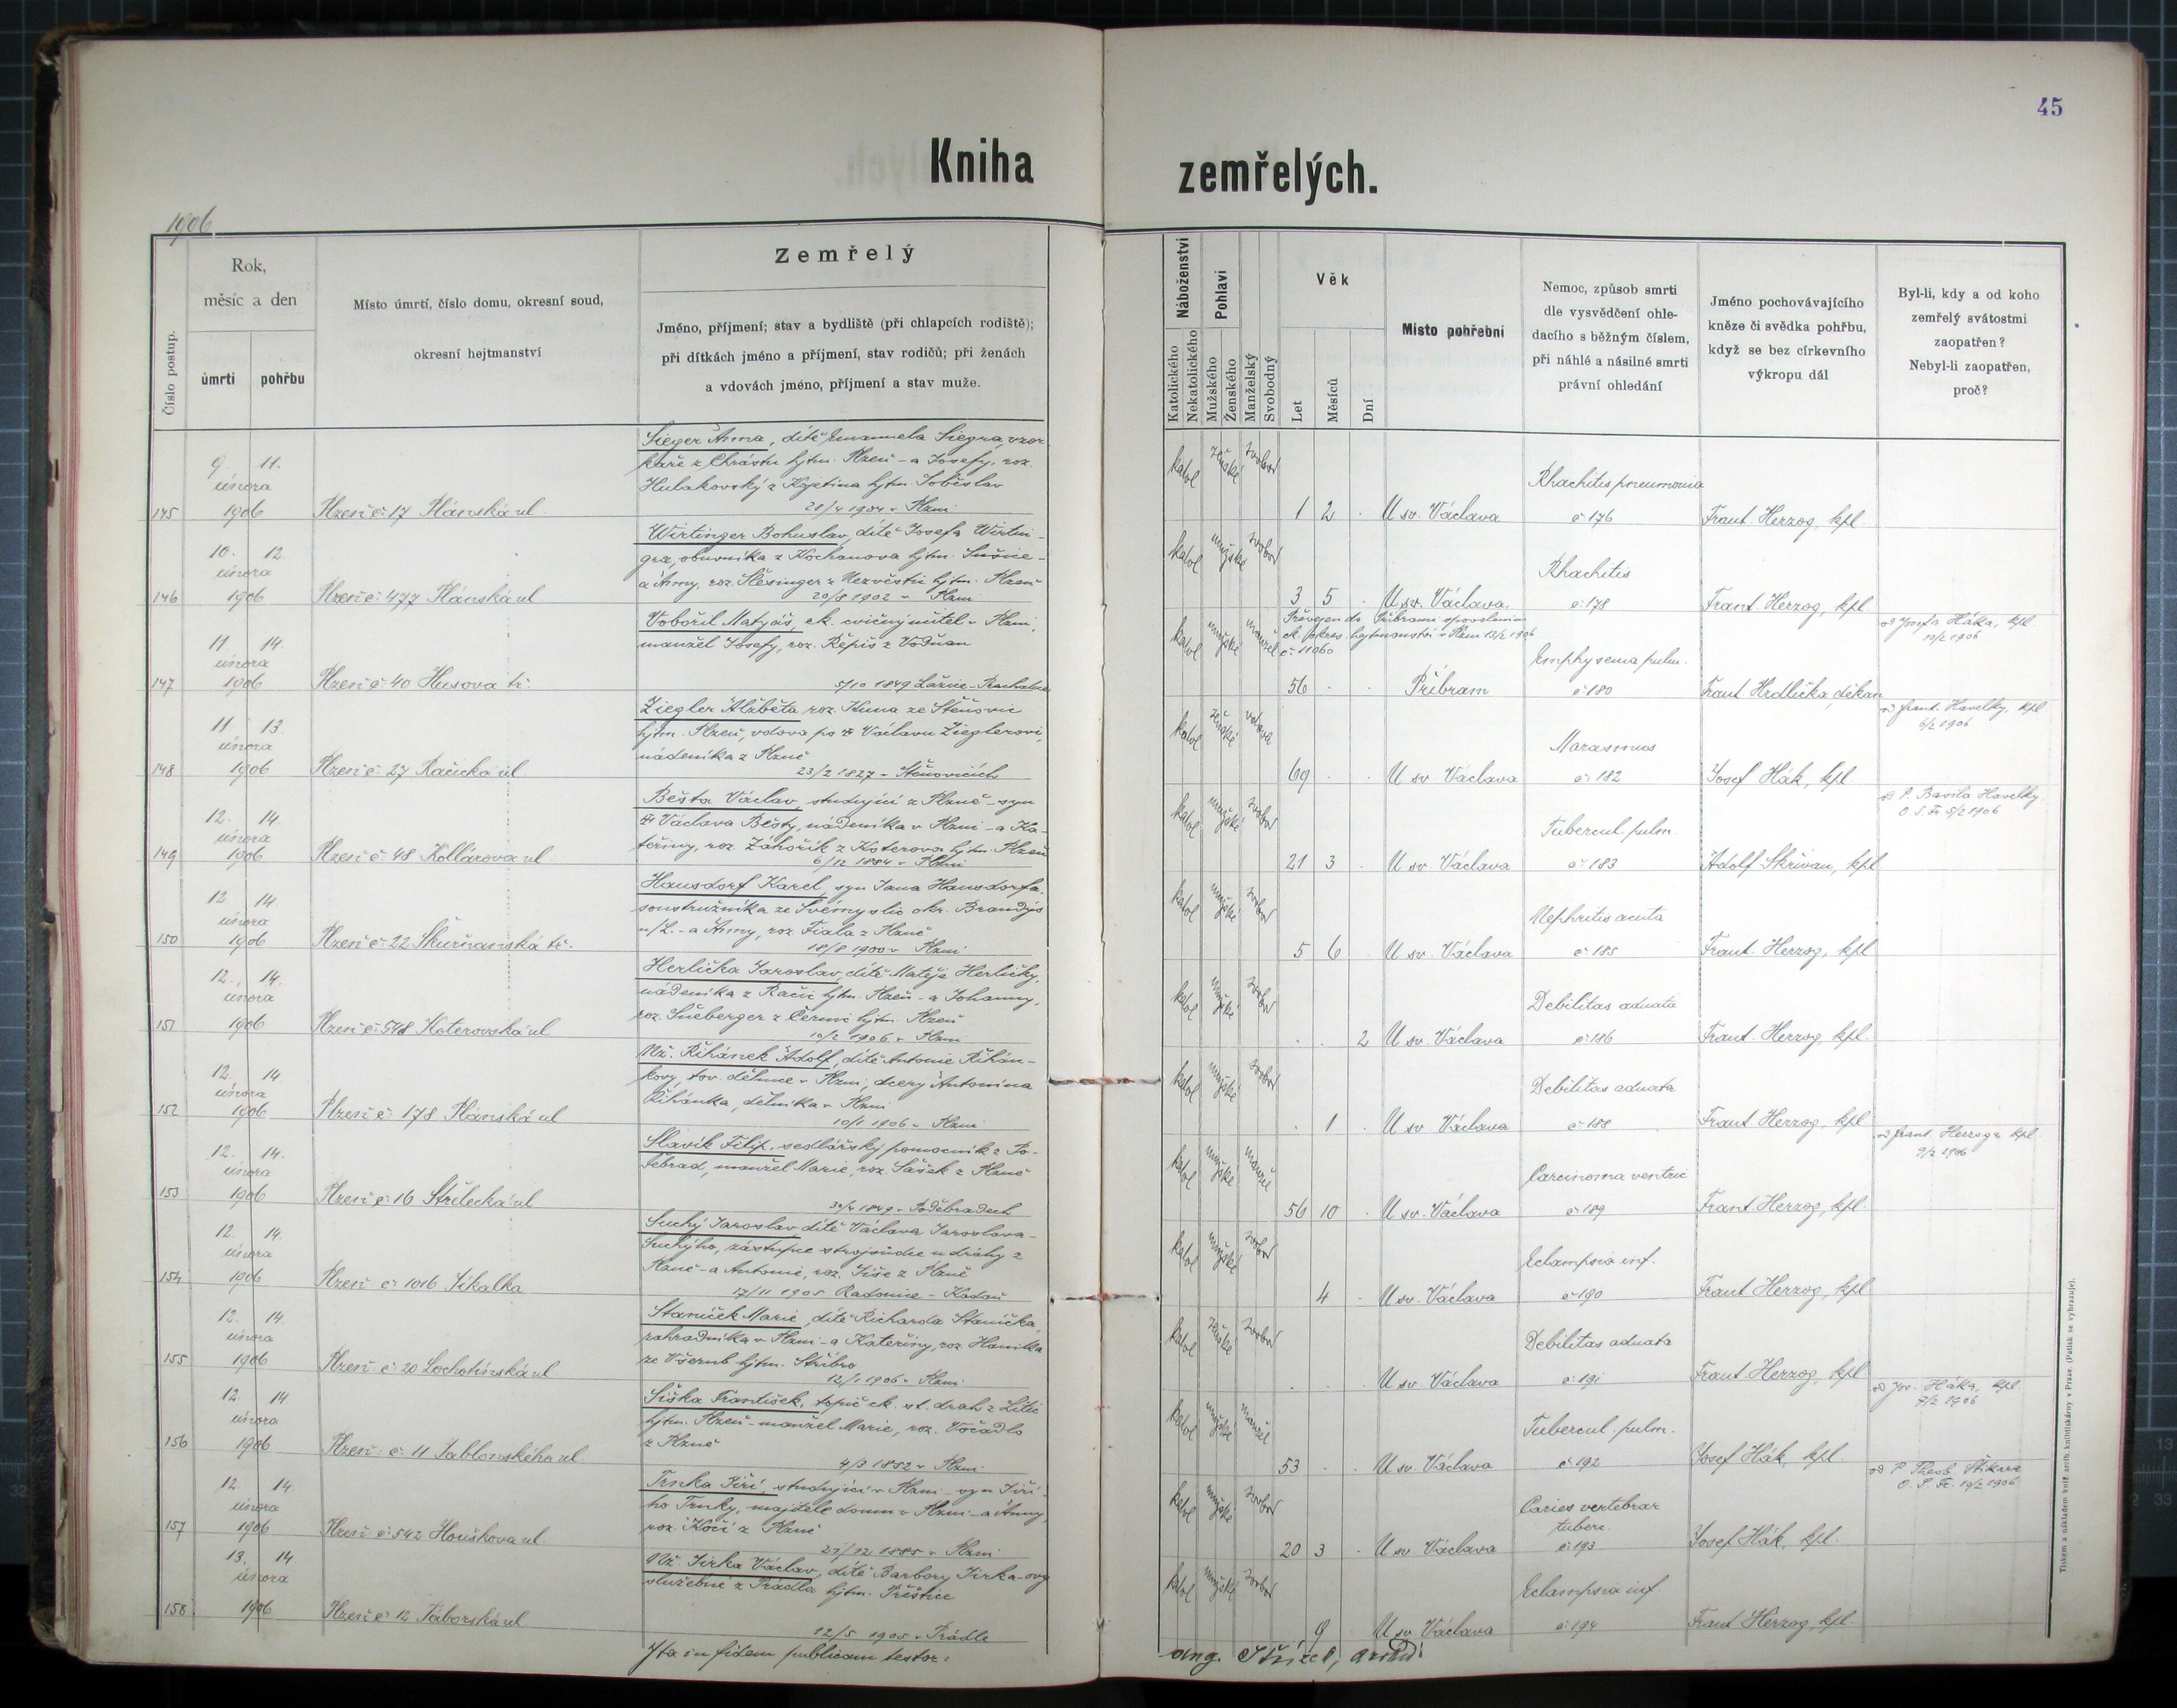 45
Kniha zemřelých.
1906
Číslo postup.
Rok,
měsíc a den
úmrtí
pohřbu
Místo úmrtí, číslo domu, okresní soud,
okresní hejtmanství
Zemřelý
Jméno, příjmení; stav a bydliště (při chlapcích rodiště);
při dítkách jméno a příjmení, stav rodičů; při ženách
a vdovách jméno, příjmení a stav muže.
Náboženství
Katolického
Nekatolického
Pohlaví
Mužského
Ženského
Manželský
Svobodný
Věk
Let
Měsíců
Dní
Místo pohřební
Nemoc, způsob smrti
dle vysvědčení ohle-
dacího s běžným číslem,
při náhlé a násilné smrti
právní ohledání
Jméno pochovávajícího
kněze či svědka pohřbu,
když se bez církevního
výkropu dál
Byl-li, kdy a od koho
zemřelý svátostmi
zaopatřen?
Nebyl-li zaopatřen,
proč?
145
9. 11.
února
1906
Plzeň č: 17 Plánská ul
Sieger Anna, dítě Emanuela Siegra, vzor-
kaře z Chrástu hjtm. Plzeň - a Josefy, roz.
Hulakovský z hjtm. Soběslav
28/4 1904 v Plzni
katol ženské svobod
1 2 .
U sv. Václava
Rhachitis pneumonia
č: 176
Frant. Herzog, kpl.
146
10. 12
února
1906
Plzeň č: 477 Plánská ul
Wirtinger Bohuslav, dítě Josefa Wirtin-
gra, obuvníka z Kochanova hjtm. Sušice -
a Anny, roz. Šlesinger z Nezvěstic hjtm. Plzeň
20/8 1902 v Plzni
katol mužské svobod
3 5 .
U sv. Václava.
Rhachitis
č: 178
Frant. Herzog, kpl.
147
11. 14.
února
1906
Plzeň č: 40 Husova tř.
Vobořil Matyáš, ck. cvičný učitel v Plzni,
manžel Josefy, roz. Řepiš z Vodňan
5/10 1849 Lažnice-
katol mužské manžel
Převezen do Příbrami s povolením
ck. okres. hejtmanství v Plzni 13/2 1906
č: 11060
56 . .
Příbram
Emphysema pulm.
č: 180
Frant Hrdlička, děkan
od Josefa Háka, kpl.
10/2 1906
148
11 13.
února
1906
Plzeň č: 27 Račická ul
Ziegler Alžběta, roz. Kuna ze Štěnovic
hjtm. Plzeň, vdova po † Václavu Zieglerovi,
nádeníka z Plzně
23/2 1827 v Štěnovicích
katol ženské vdova
69 . .
U sv. Václava
Marasmus
č: 182
Josef Hák, kpl
od frant. Havelky, kpl
6/2 1906
149
12. 14
února
1906
Plzeň č: 48 Kollárova ul
Bešta Václav, studující z Plzně - syn
† Václava Bešty, nádeníka v Plzni - a Ka-
teřiny, roz. Záhořík z Koterova hjtm. Plzeň
6/12 1884 v Plzni
katol mužské svobod
21 3 .
U sv. Václava
Tubercul. pulm.
č: 183
Adolf Skřivan, kpl
od P. Basila Havelky.
O. S. Fr. 5/2 1906
150
12 14.
února
1906
Plzeň č: 22 Škurňanská tř.
Hausdorf Karel, syn Jana Hausdorfa,
soustružníka ze Svémyslic okr. Brandýs
n/L. - a Anny, roz. Fiala z Plzně
18/8 1900 v Plzni
katol mužské svobod
5 6 .
U sv. Václava
Nephritis acuta
č: 185
Frant. Herzog, kpl
151
12. 14.
února
1906
Plzeň č: 548 Koterovská ul
Herlička Jaroslav, dítě Matěje Herličky,
nádeníka z Račic hjtm. Plzeň - a Johanny,
roz. Šneberger z Černic hjtm. Plzeň
10/2 1906 v Plzni
katol mužské svobod
. . 2
U sv. Václava
Debilitas adnata
č: 186
Frant. Herzog, kpl.
152
12. 14
února
1906
Plzeň č: 178 Plánská ul
Nž. Řihánek Adolf, dítě Antonie Řihán-
kovy, tov. dělnice v Plzni, dcery Antonína
Řihánka, dělníka v Plzni
10/1 1906 v Plzni
katol mužské svobod
. 1 .
U sv. Václava
Debilitas adnata
č: 188
Frant. Herzog, kpl.
153
12. 14.
února
1906
Plzeň č: 16 Střelecká ul
Slavík Filip, sedlářský pomocník z Po-
děbrad, manžel Marie, roz. Sašek z Plzně
30/4 1849 v Poděbradech
katol mužské manžel
56 10 .
U sv. Václava
Carcinoma ventric
č: 189
Frant. Herzog, kpl.
od frant. Herzoga kpl.
9/2 1906
154
12. 14.
února
1906
Plzeň č: 1016 Jikalka
Suchý Jaroslav, dítě Václava Jaroslava
Suchýho, zástupce strojvůdce u dráhy z
Plzně - a Antonie, roz. Jíše z Plzně
17/11 1905 Radonice - Kadaň
katol mužské svobod
4 .
U sv. Václava
Eclampsia inf.
č: 190
Frant Herzog, kpl
155
12. 14.
února
1906
Plzeň č: 20 Lochotínská ul
Staníček Marie, dítě Richarda Staníčka,
zahradníka v Plzni - a Kateřiny, roz. Hanilka
ze Všerub hjtm. Stříbro
12/1 1906 v Plzni
katol ženské svobod
. .
U sv. Václava
Debilitas adnata
č: 191
Frant. Herzog, kpl.
156
12 14
února
1906
Plzeň č: 11 Jablonského ul
Šiška František, topič ck. st. drah z Litic
hjtm. Plzeň - manžel Marie, roz. Vočadlo
z Plzně
4/3 1852 v Plzni
katol mužské manžel
53 . .
U sv. Václava
Tubercul. pulm.
č: 192
Josef Hák, kpl.
od Jos. Háka, kpl.
7/2 1906
157
12 14.
února
1906
Plzeň č: 542 Houškova ul.
Trnka Jiří, studující v Plzni - syn Jiří-
ho Trnky, majitele domu v Plzni - a Anny
roz. Kočí z Plzně
27/12 1885 v Plzni
katol mužské svobod
20 3 .
U sv. Václava
Caries vertebrar
tuberc.
č: 193
Josef Hák, kpl.
od P. Theob. Štikara
O. S. Fr. 10/2 1906
158
13. 14
února
1906
Plzeň č: 12 Táborská ul.
Nž. Jirka Václav, dítě Barbory Jirka-ovy
služebné z Prádla hjtm. Přeštice
12/5 1905 v Prádle
katol mužské svobod
9
U sv. Václava
Eclampsia inf.
č: 194
Frant Herzog, kpl.
Ita in fidem publicam testor: